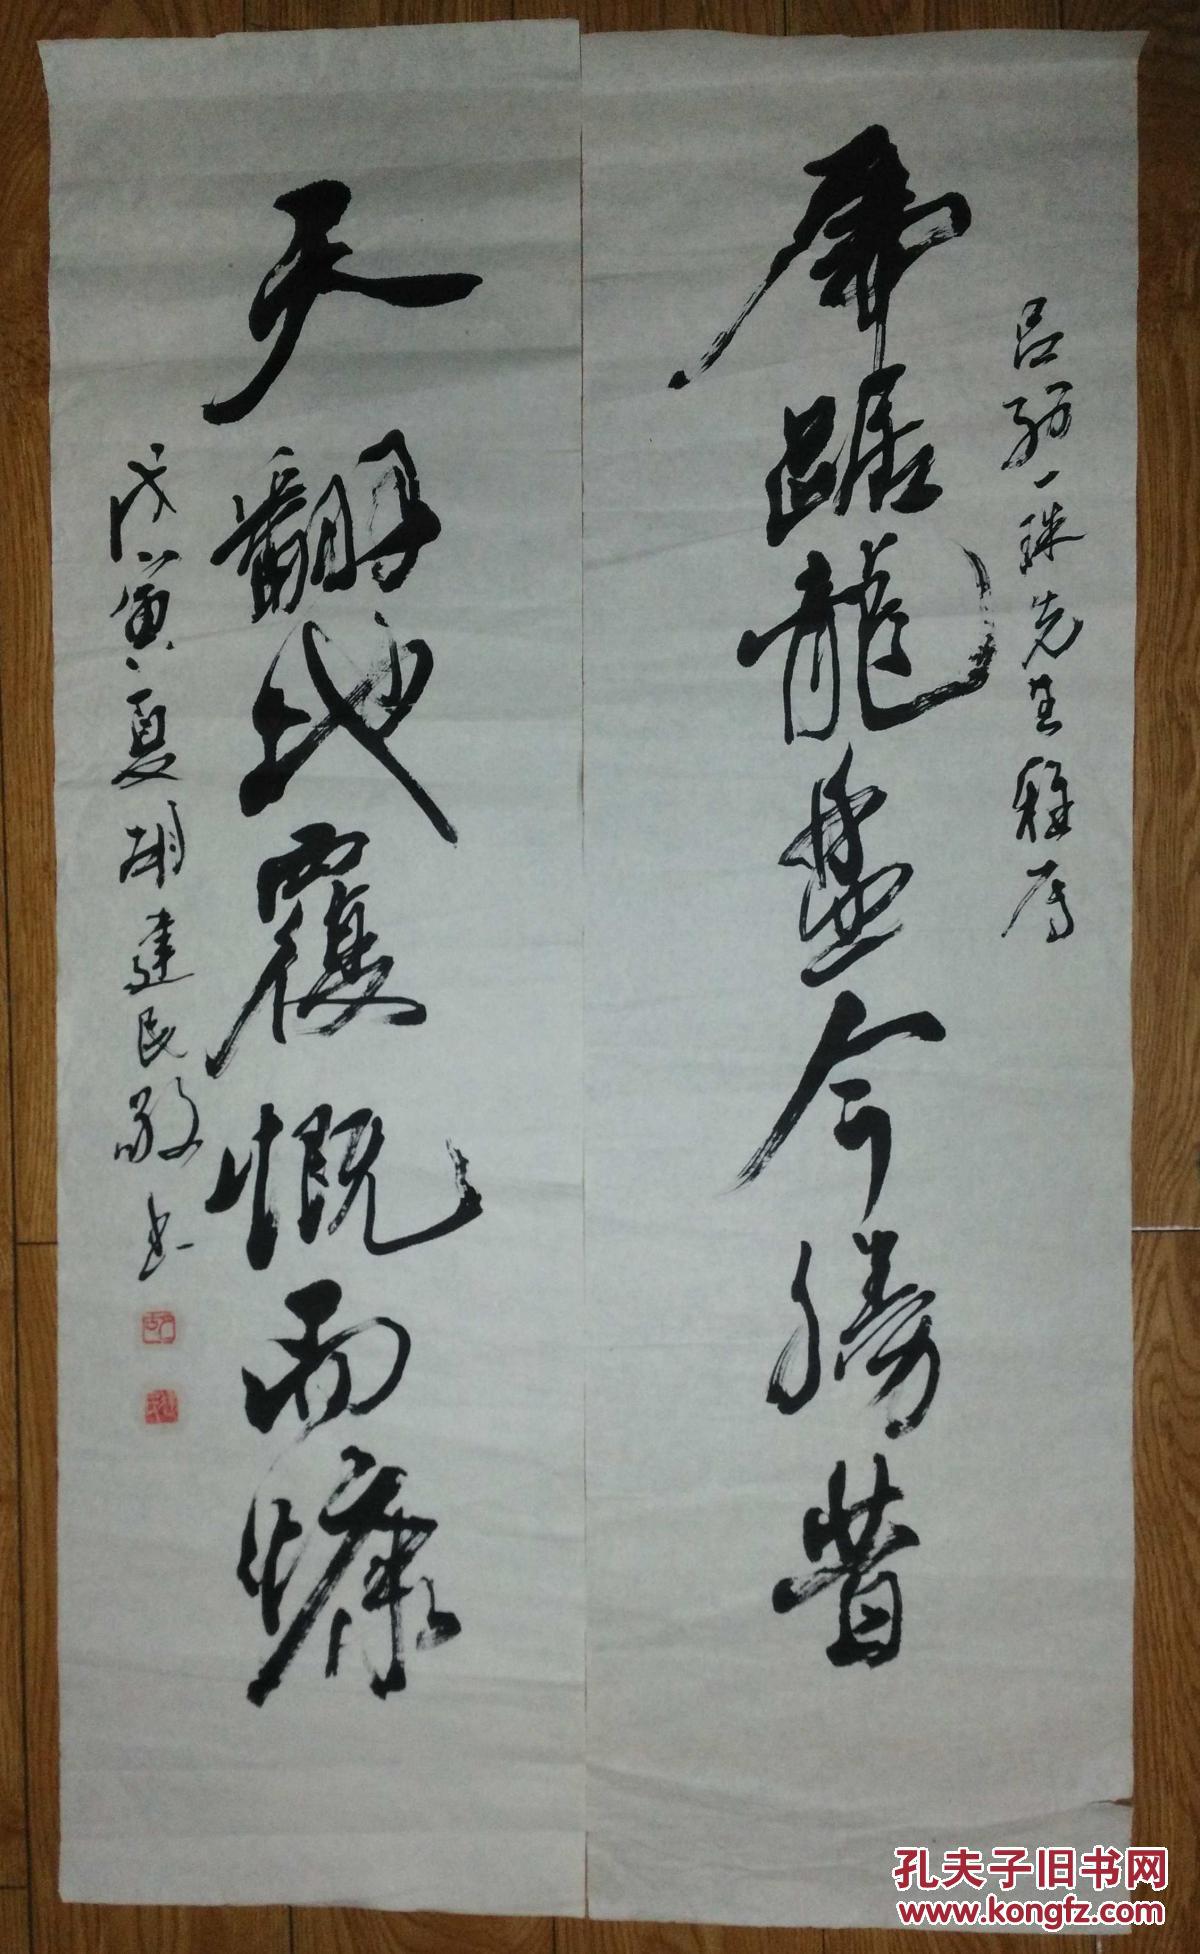 吕
一珠先生雅属
虎踞龍盤今勝昔
天翻地覆慨而慷
戊寅夏胡建民敬书
孔夫子旧书网
www.kongfz.com